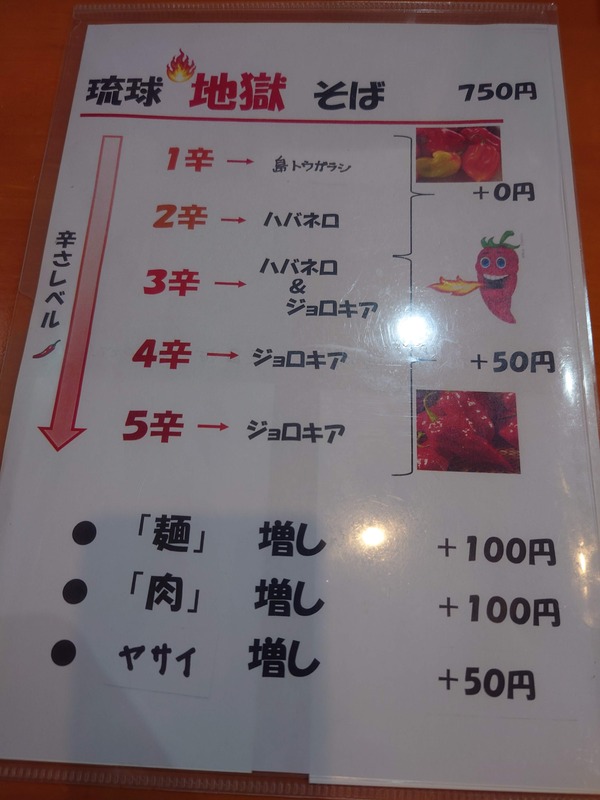 琉球 地獄 そば 750円
辛さレベル
1辛 → 島トウガラシ
+0円
2辛 → ハバネロ
3辛 → ハバネロ
&
ジョロキア
4辛 → ジョロキア
+50円
5辛 → ジョロキア
● 「麺」 増し +100円
● 「肉」 増し +100円
● ヤサイ 増し +50円